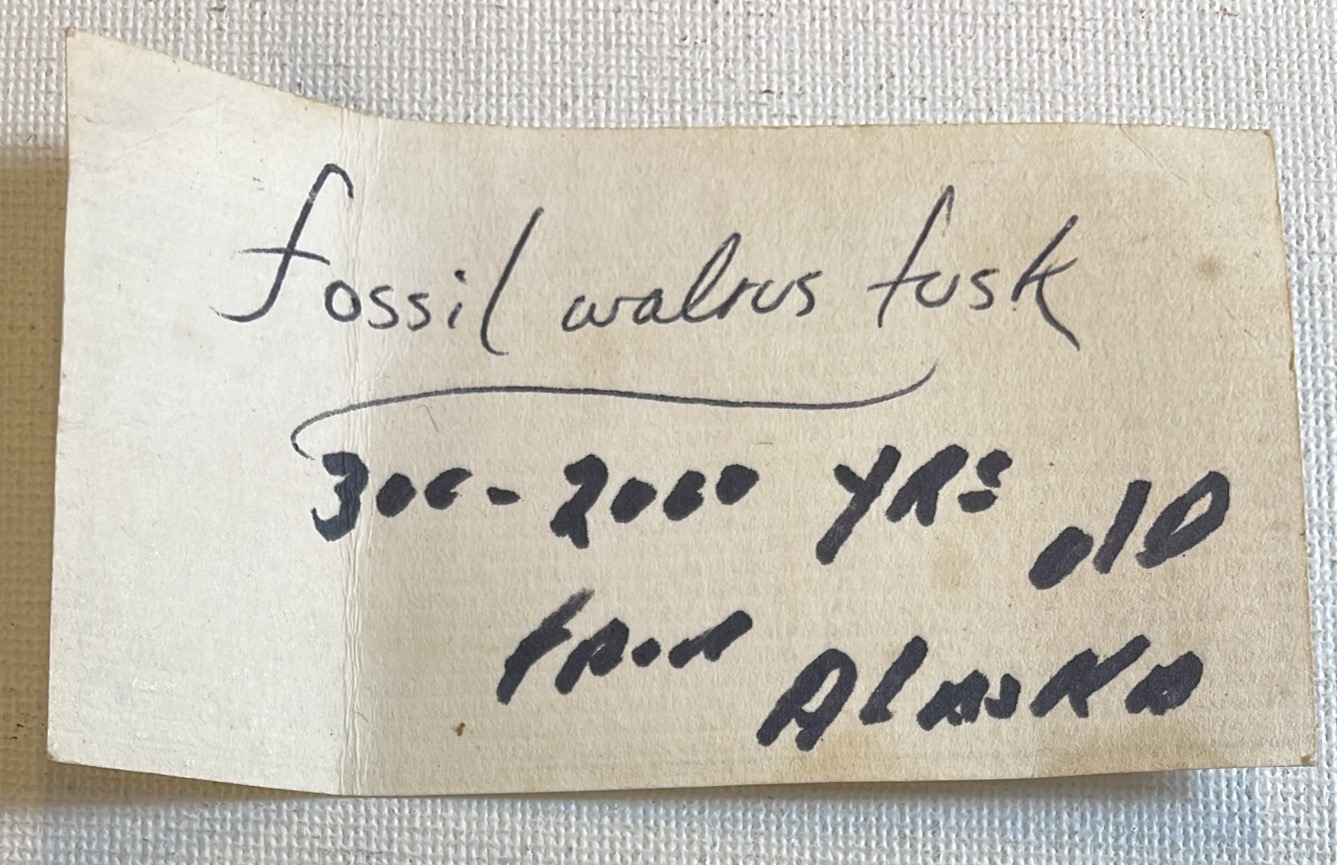 fossil walrus tusk
300-2000 YRS old
from ALASKA